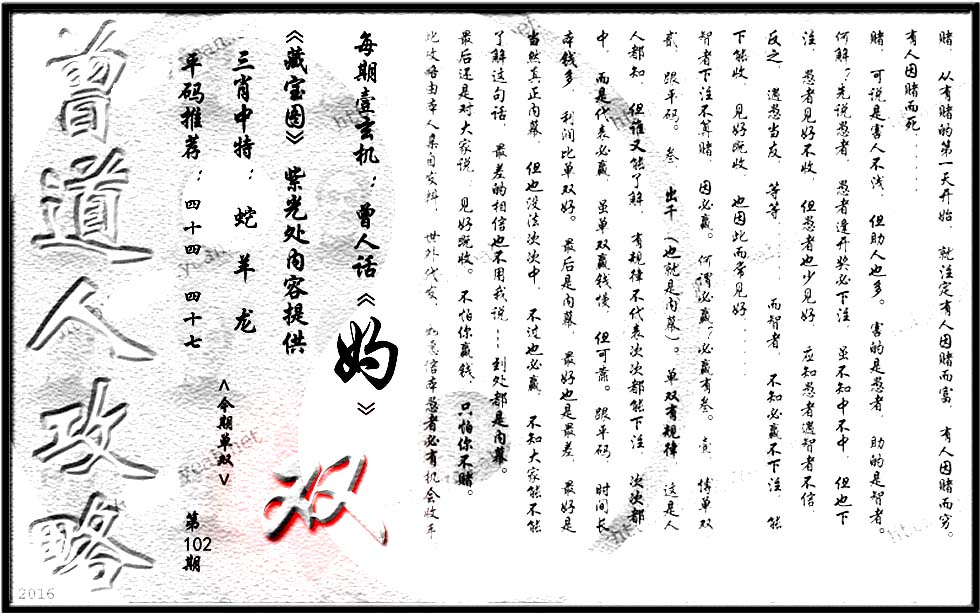 赌，从有赌的第一天开始，就注定有人因赌而富，有人因赌而穷。
有人因赌而死......
赌，可说是害人不浅，但助人也多。害的是愚者，助的是智者。
何解？先说愚者，愚者逢开奖必下注，虽不知中不中，但也下
注，愚者见好不收，但愚者也少见好，应知愚者遇智者不信，
反之，遇愚当友，等等......而智者，不知必赢不下注，能
下能收，见好既收，也因此而常见好......
智者下注不算赌，因必赢。何谓必赢？必赢有叁。壹，博单双
贰，跟平码。叁，出千（也就是内幕）。单双有规律，这是人
人都知，但谁又能了解，有规律不代表次次都能下注，次次都
中，而是代表必赢，虽单双赢钱慢，但可靠。跟平码，时间长
本钱多，利润比单双好。最后是内幕，最好也是最差，最好是
当然真正内幕，但也没法次次中，不过也必赢，不知大家能不能
了解这句话，最差的相信也不用我说……到处都是内幕。
最后还是对大家说，见好既收。不怕你赢钱，只怕你不赌。
此攻略由本人亲自发料，世外代友，如急信本愚者必有机会收本
每期壹玄机：曾人话《妁》
《藏宝图》紫光处内容提供
三肖中特：蛇羊龙
平码推荐：四十四 四十七
<今期单双>
双
第102期
曾道人攻略
2016